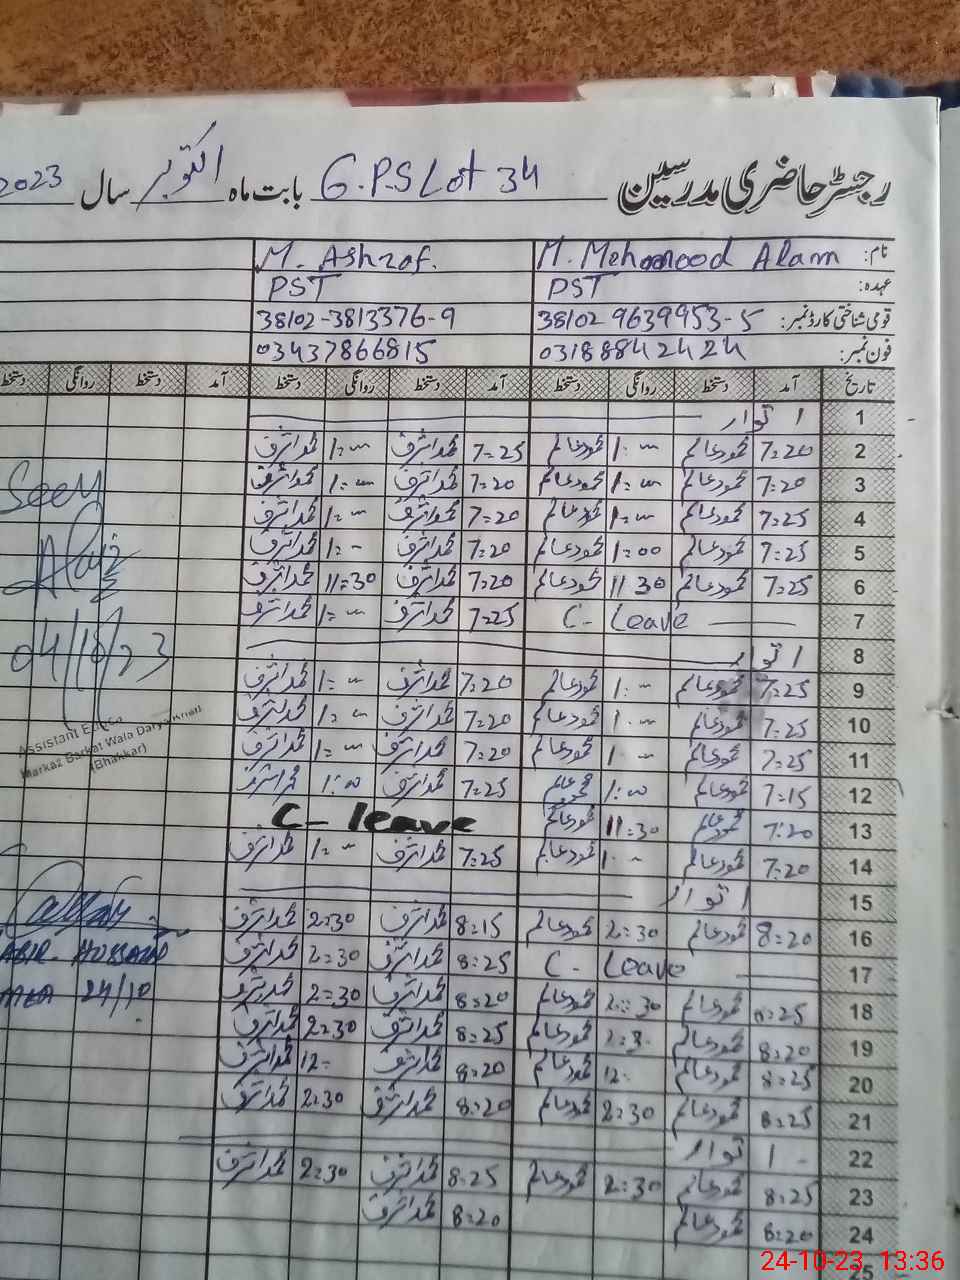 رجسٹر حاضری مدرسین G.P.S Lot 34 بابت ماہ اکتوبر سال 2023
نام: M. Mehmood Alam M. Ashraf.
عہدہ: PST PST
قومی شناختی کارڈ نمبر: 38102 9639953-5 38102-3813376-9
فون نمبر: 03188842424 03437866815
تاریخ آمد دستخط روانگی دستخط آمد دستخط روانگی دستخط آمد دستخط روانگی دستخط
1 اتوار
2 7:20 محمود عالم 1:00 محمود عالم 7:25 محمد اشرف 1:00 محمد اشرف
3 7:20 محمود عالم 1:00 محمود عالم 7:20 محمد اشرف 1:00 محمد اشرف
4 7:25 محمود عالم 1:00 محمود عالم 7:20 محمد اشرف 1:00 محمد اشرف
5 7:25 محمود عالم 1:00 محمود عالم 7:20 محمد اشرف 1:- محمد اشرف
6 7:25 محمود عالم 11 30 محمود عالم 7:20 محمد اشرف 11:30 محمد اشرف
7 C- Leave 7:25 محمد اشرف 1:00 محمد اشرف
8 اتوار
9 7:25 محمود عالم 1:00 محمود عالم 7:20 محمد اشرف 1:00 محمد اشرف
10 7:25 محمود عالم 1:00 محمود عالم 7:20 محمد اشرف 1:00 محمد اشرف
11 7:25 محمود عالم 1:00 محمود عالم 7:20 محمد اشرف 1:00 محمد اشرف
12 7:15 محمود عالم 1:00 محمود عالم 7:25 محمد اشرف 1:00 محمد اشرف
13 7:20 محمود عالم 11:30 محمود عالم C- leave
14 7:20 محمود عالم 1:00 محمود عالم 7:25 محمد اشرف 1:00 محمد اشرف
15 اتوار
16 8:20 محمود عالم 2:30 محمود عالم 8:15 محمد اشرف 2:30 محمد اشرف
17 C- Leave 8:25 محمد اشرف 2:30 محمد اشرف
18 8:25 محمود عالم 2:30 محمود عالم 8:20 محمد اشرف 2:30 محمد اشرف
19 8:20 محمود عالم 2:3- محمود عالم 8:25 محمد اشرف 2:30 محمد اشرف
20 8:25 محمود عالم 12- محمود عالم 8:20 محمد اشرف 12- محمد اشرف
21 8:25 محمود عالم 2:30 محمود عالم 8:20 محمد اشرف 2:30 محمد اشرف
22 اتوار
23 8:25 محمود عالم 2:30 محمود عالم 8:25 محمد اشرف 2:30 محمد اشرف
24 8:20 محمود عالم 8:20 محمد اشرف
25
Seen
04/10/23
Assistant Edu:
Markaz Barkat Wala Darya Khan
(Bhakkar)
HUSSAIN
MEA 24/10
24-10-23 13:36